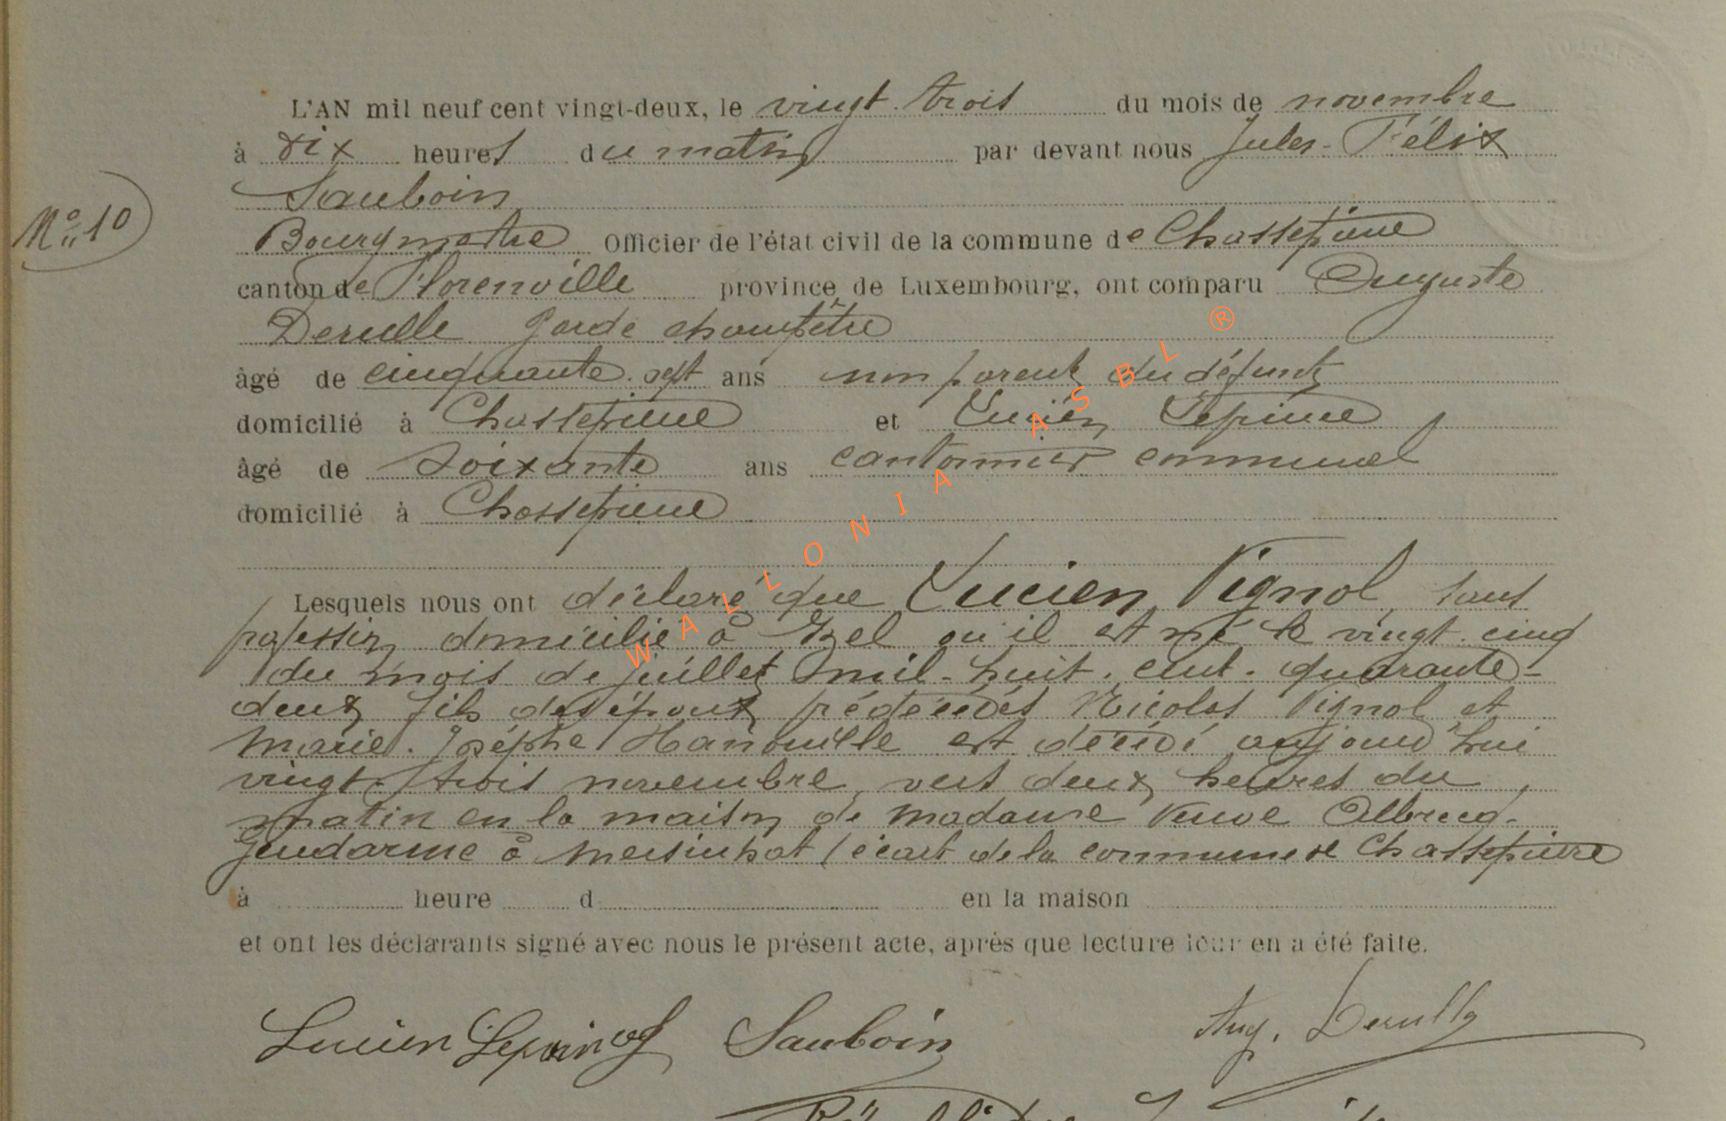 L'AN mil neuf cent vingt-deux, le vingt trois du mois de novembre
à dix heures du matin par devant nous Jules-Félix
Sauboin
Nº 10
Bourgmestre Officier de l'état civil de la commune de Chassepierre
canton de Florenville province de Luxembourg, ont comparu Auguste
Derulle garde champêtre
âgé de cinquante sept ans non parent du défunt
domicilié à Chassepierre et Lucien Lepine
âgé de soixante ans cantonnier communal
domicilié à Chassepierre
Lesquels nous ont déclaré que Lucien Vignol sans
profession domicilié à Izel qu'il est né le vingt-cinq
du mois de juillet mil-huit-cent-quarante-
deux fils des époux prédécédés Nicolas Vignol et
Marie-Josèphe est décédé aujourd'hui
vingt-trois novembre, vers deux heures du
matin en la maison de madame Veuve
gendarme à Mersinhat (écart de la commune de Chassepierre
à heure d en la maison
et ont les déclarants signé avec nous le présent acte, après que lecture leur en a été faite.
Lucien Sauboin Aug. Derulle
WALLONIA ASBL ®